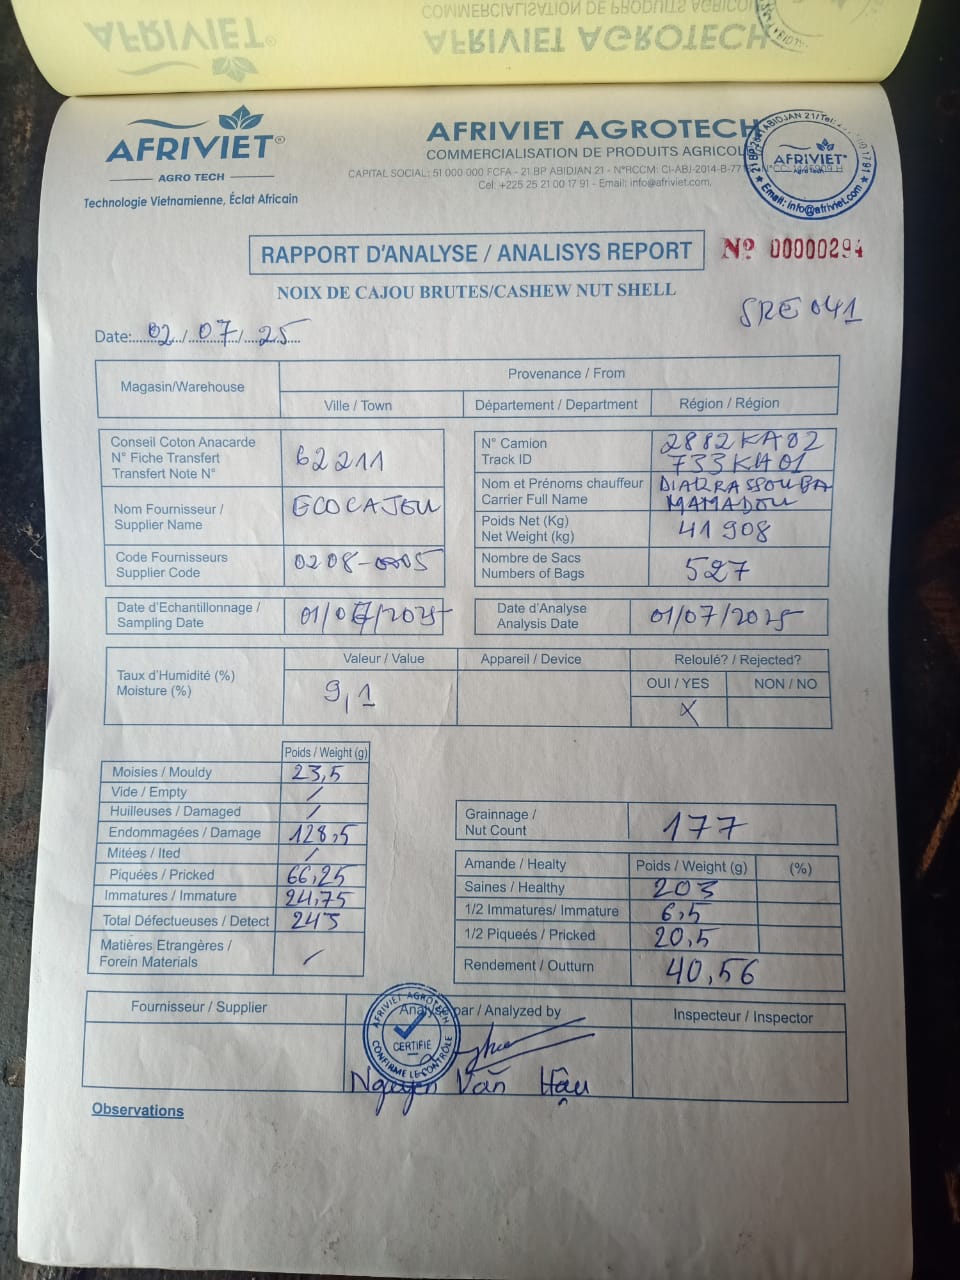 AFRIVIET®
AGRO TECH
Technologie Vietnamienne, Éclat Africain
AFRIVIET AGROTECH
COMMERCIALISATION DE PRODUITS AGRICOL
CAPITAL SOCIAL: 51 000 000 FCFA - 21 BP ABIDJAN 21 - N°RCCM: CI-ABJ-2014-B-77
Cel: +225 25 21 00 17 91 - Email: info@afriviet.com,
AFRIVIET
Agro Tech
Email: info@afriviet.com
RAPPORT D'ANALYSE / ANALISYS REPORT
Nº 00000294
NOIX DE CAJOU BRUTES/CASHEW NUT SHELL
SRE 041
Date: 02/07/25
Magasin/Warehouse
Provenance / From
Ville / Town
Département / Department
Région / Région
Conseil Coton Anacarde
N° Fiche Transfert
Transfert Note N°
62211
N° Camion
Track ID
2882KA02
733KH01
Nom et Prénoms chauffeur
Carrier Full Name
DIARRASSOUBA
MAMADOU
Nom Fournisseur /
Supplier Name
ECOCAJOU
Poids Net (Kg)
Net Weight (kg)
41 908
Code Fournisseurs
Supplier Code
0208-0005
Nombre de Sacs
Numbers of Bags
527
Date d'Echantillonnage /
Sampling Date
01/07/2025
Date d'Analyse
Analysis Date
01/07/2025
Taux d'Humidité (%)
Moisture (%)
Valeur / Value
9,1
Appareil / Device
Reloulé? / Rejected?
OUI / YES
NON / NO
X
Poids / Weight (g)
Moisies / Mouldy 23,5
Vide / Empty /
Huilleuses / Damaged /
Endommagées / Damage 128,5
Mitées / Ited /
Piquées / Pricked 66,25
Immatures / Immature 24,75
Total Défectueuses / Detect 243
Matières Etrangères /
Forein Materials /
Grainnage /
Nut Count
177
Amande / Healty Poids / Weight (g) (%)
Saines / Healthy 203
1/2 Immatures/ Immature 6,5
1/2 Piqueés / Pricked 20,5
Rendement / Outturn 40,56
Fournisseur / Supplier
Analysé par / Analyzed by
Inspecteur / Inspector
AFRIVIET AGROTECH
CERTIFIÉ
CONFIRME LE CONTRÔLE
Nguyen Văn Hậu
Observations